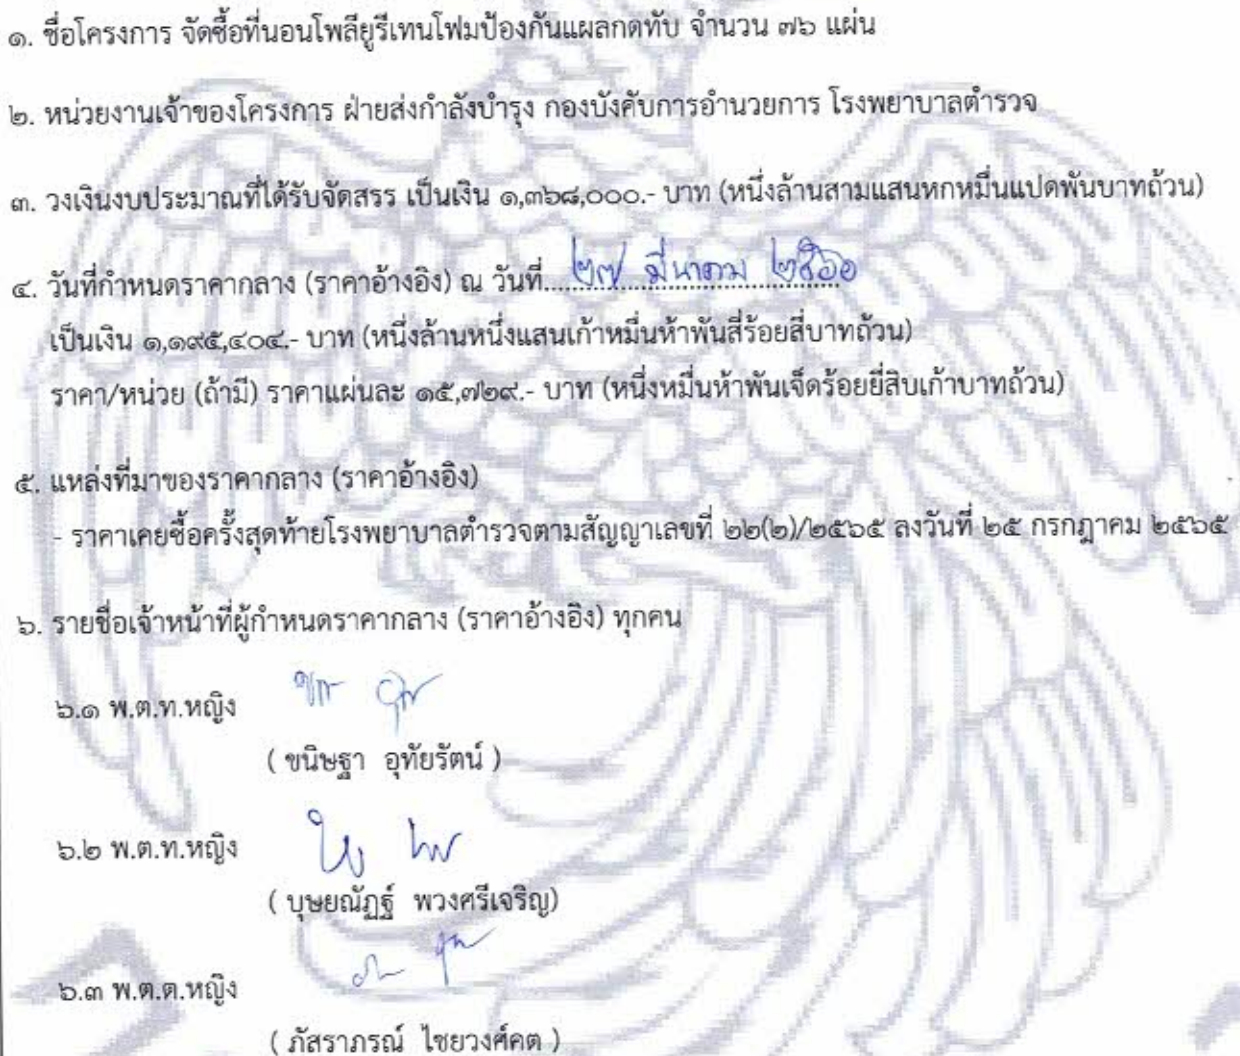 ๑. ชื่อโครงการ จัดซื้อที่นอนโพลียูรีเทนโฟมป้องกันแผลกดทับ จำนวน ๗๖ แผ่น
๒. หน่วยงานเจ้าของโครงการ ฝ่ายส่งกำลังบำรุง กองบังคับการอำนวยการ โรงพยาบาลตำรวจ
๓. วงเงินงบประมาณที่ได้รับจัดสรร เป็นเงิน ๑,๓๖๘,๐๐๐.- บาท (หนึ่งล้านสามแสนหกหมื่นแปดพันบาทถ้วน)
๔. วันที่กำหนดราคากลาง (ราคาอ้างอิง) ณ วันที่ ๒๗ มีนาคม ๒๕๖๖
เป็นเงิน ๑,๑๙๕,๔๐๔.- บาท (หนึ่งล้านหนึ่งแสนเก้าหมื่นห้าพันสี่ร้อยสี่บาทถ้วน)
ราคา/หน่วย (ถ้ามี) ราคาแผ่นละ ๑๕,๗๒๙.- บาท (หนึ่งหมื่นห้าพันเจ็ดร้อยยี่สิบเก้าบาทถ้วน)
๕. แหล่งที่มาของราคากลาง (ราคาอ้างอิง)
- ราคาเคยซื้อครั้งสุดท้ายโรงพยาบาลตำรวจตามสัญญาเลขที่ ๒๒(๒)/๒๕๖๕ ลงวันที่ ๒๕ กรกฎาคม ๒๕๖๕
๖. รายชื่อเจ้าหน้าที่ผู้กำหนดราคากลาง (ราคาอ้างอิง) ทุกคน
๖.๑ พ.ต.ท.หญิง
( ขนิษฐา อุทัยรัตน์ )
๖.๒ พ.ต.ท.หญิง
( บุษยณัฏฐ์ พวงศรีเจริญ)
๖.๓ พ.ต.ต.หญิง
( ภัสราภรณ์ ไชยวงศ์คต )